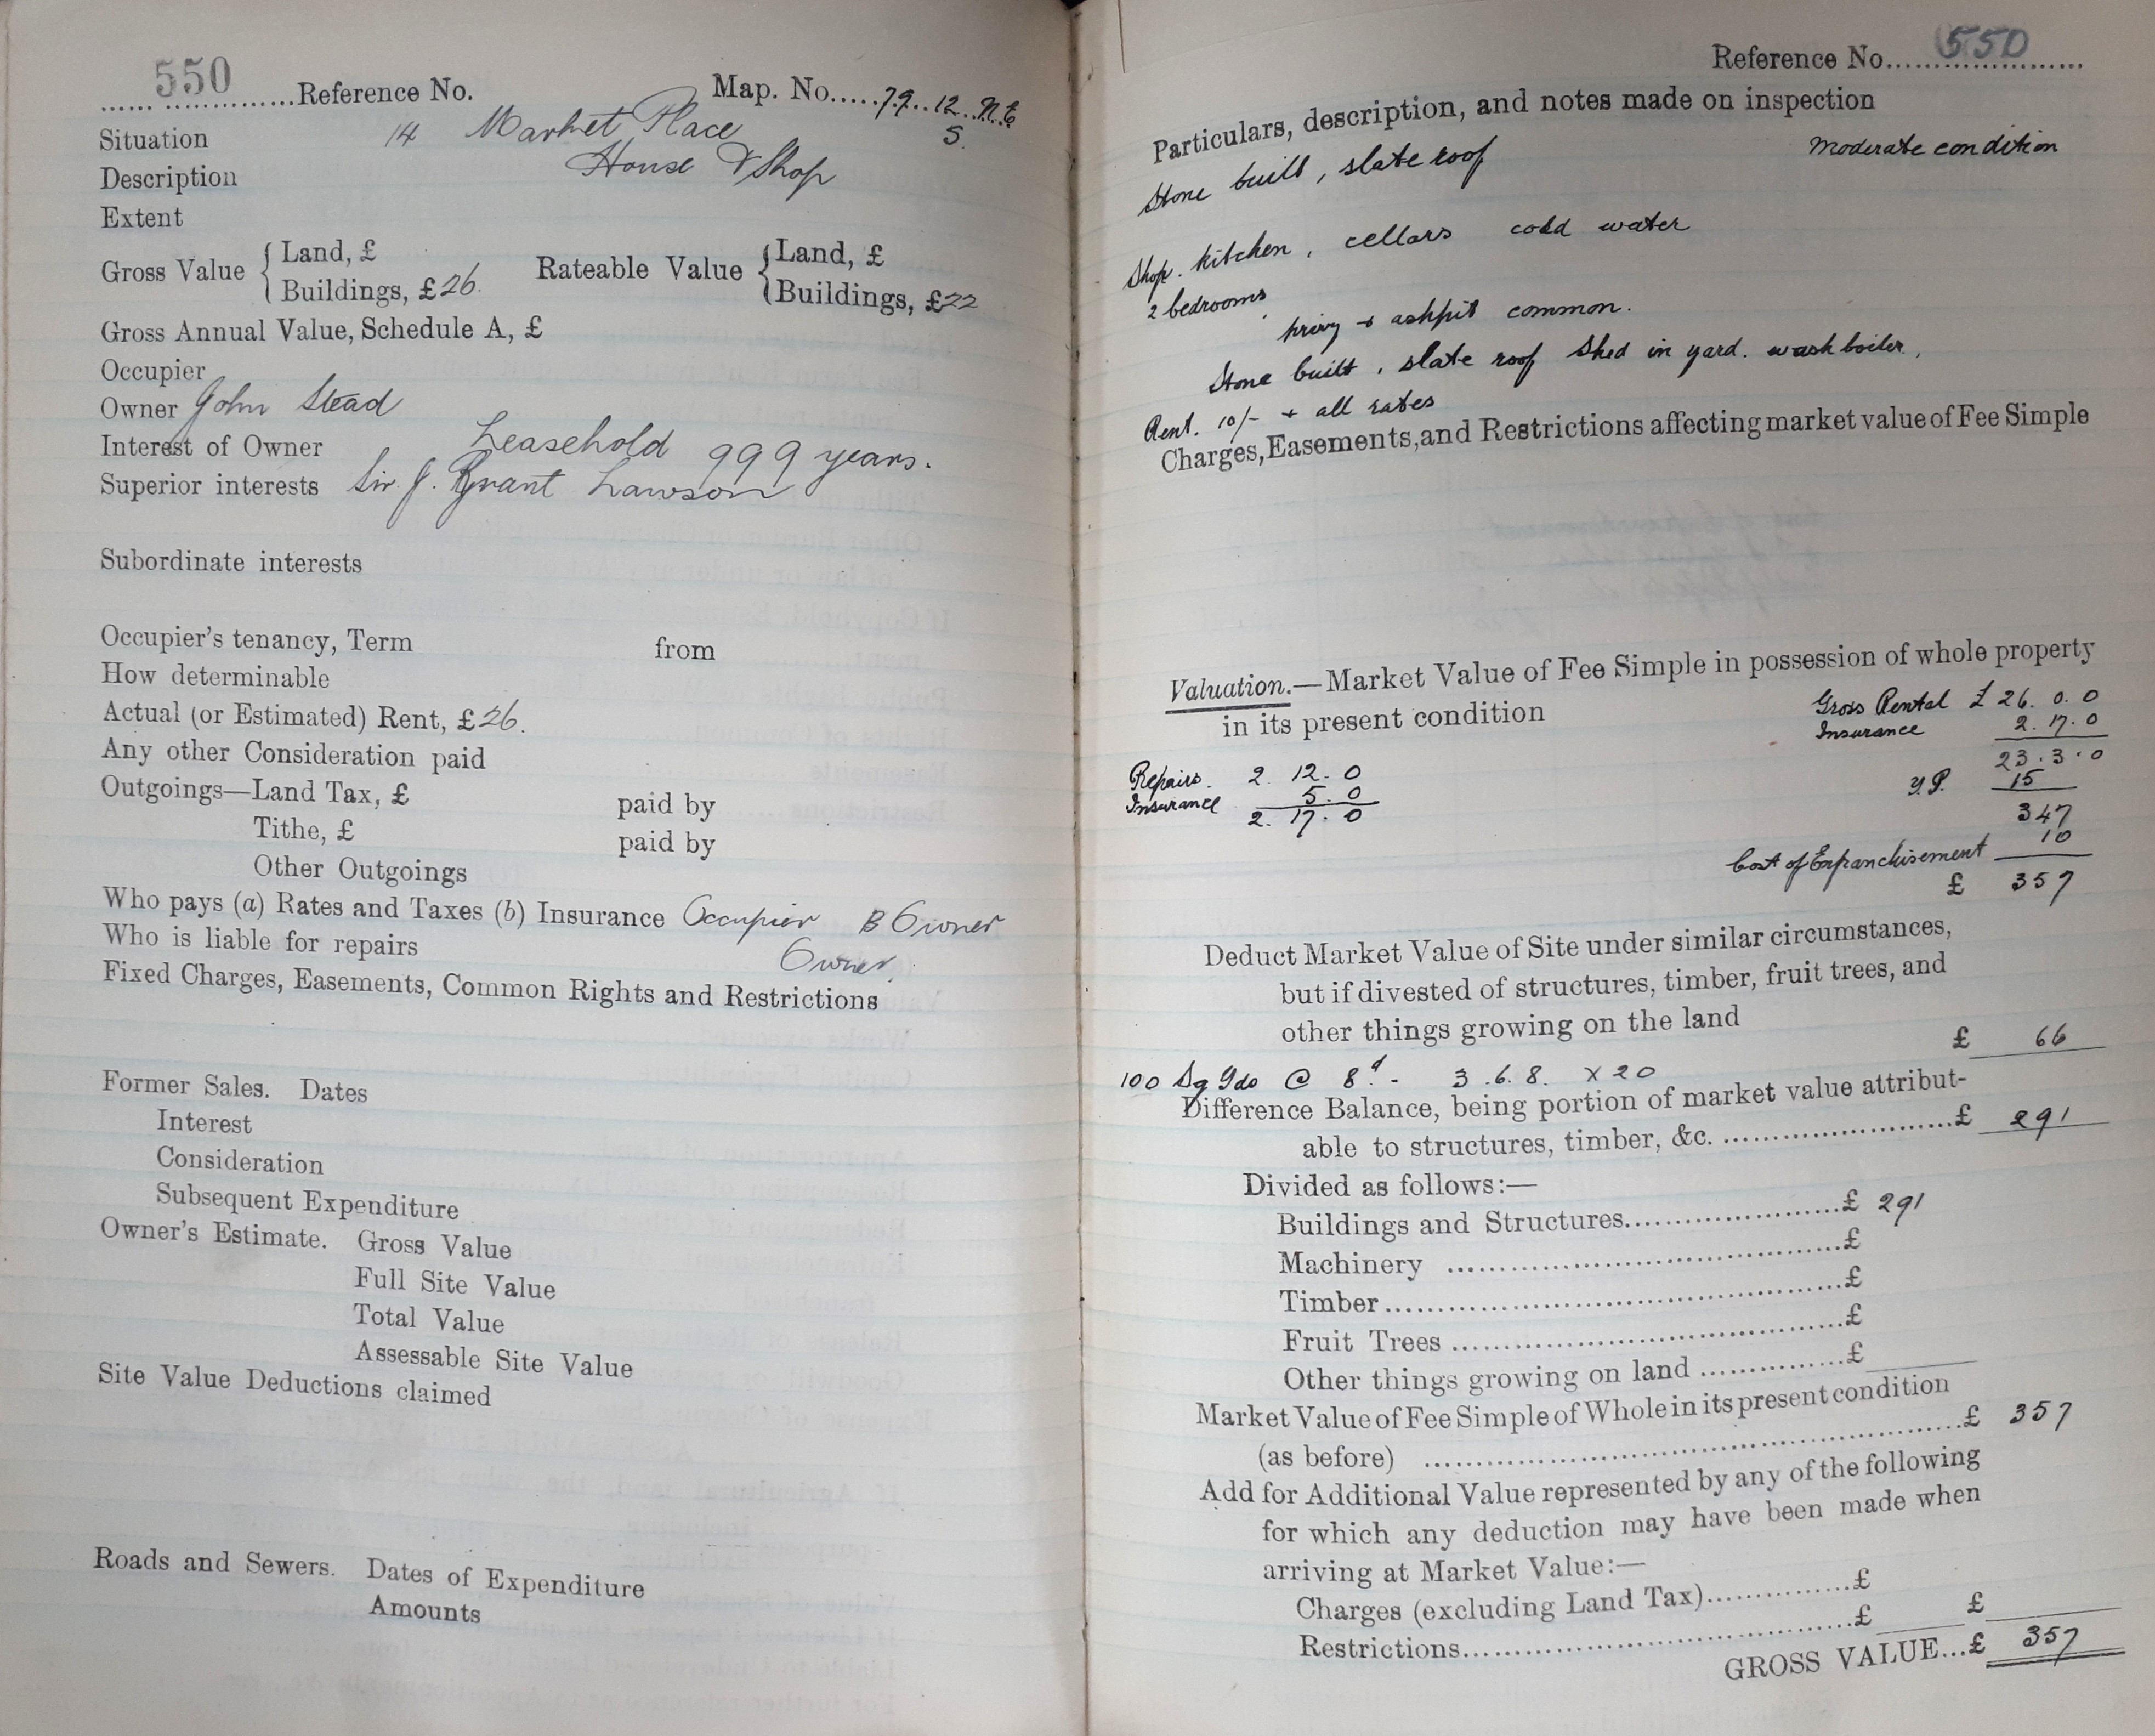 550
......ㅤ..............Reference No. Map. No.....79..12..N.E
S.
Situation 14 Market Place
Description House & Shop
Extent
Gross Value { Land, £ Rateable Value { Land, £
Buildings, £26. Buildings, £22
Gross Annual Value, Schedule A, £
Occupier
Owner John Stead
Interest of Owner Leasehold 999 years.
Superior interests Sir. J. Grant Lawson
Subordinate interests
Occupier's tenancy, Term from
How determinable
Actual (or Estimated) Rent, £26.
Any other Consideration paid
Outgoings—Land Tax, £ paid by
Tithe, £ paid by
Other Outgoings
Who pays (a) Rates and Taxes (b) Insurance Occupier B Owner
Who is liable for repairs Owner.
Fixed Charges, Easements, Common Rights and Restrictions
Former Sales. Dates
Interest
Consideration
Subsequent Expenditure
Owner's Estimate. Gross Value
Full Site Value
Total Value
Assessable Site Value
Site Value Deductions claimed
Roads and Sewers. Dates of Expenditure
Amounts
Reference No....550....
Particulars, description, and notes made on inspection
Stone built, slate roof moderate condition
Shop. kitchen, cellars cold water
2 bedrooms,
privy + ashpit common.
Stone built, slate roof shed in yard. wash boiler,
Rent. 10/- + all rates
Charges, Easements, and Restrictions affecting market value of Fee Simple
Valuation.—Market Value of Fee Simple in possession of whole property
in its present condition
Gross Rental £26. 0. 0
Insurance 2. 17. 0
23. 3. 0
Repairs. 2. 12. 0
Insurance 5. 0
2. 17. 0
Y.P. 15
347
Cost of Enfranchisement 10
£ 357
Deduct Market Value of Site under similar circumstances,
but if divested of structures, timber, fruit trees, and
other things growing on the land
£ 66
100 Sq Yds @ 8d - 3. 6. 8. X 20
Difference Balance, being portion of market value attribut-
able to structures, timber, &c. ..............................£ 291
Divided as follows:—
Buildings and Structures.........................£ 291
Machinery .............................................£
Timber....................................................£
Fruit Trees .............................................£
Other things growing on land .................£
Market Value of Fee Simple of Whole in its present condition
(as before) ..............................................................£ 357
Add for Additional Value represented by any of the following
for which any deduction may have been made when
arriving at Market Value:—
Charges (excluding Land Tax)................£
Restrictions.............................................£ £
GROSS VALUE...£ 357